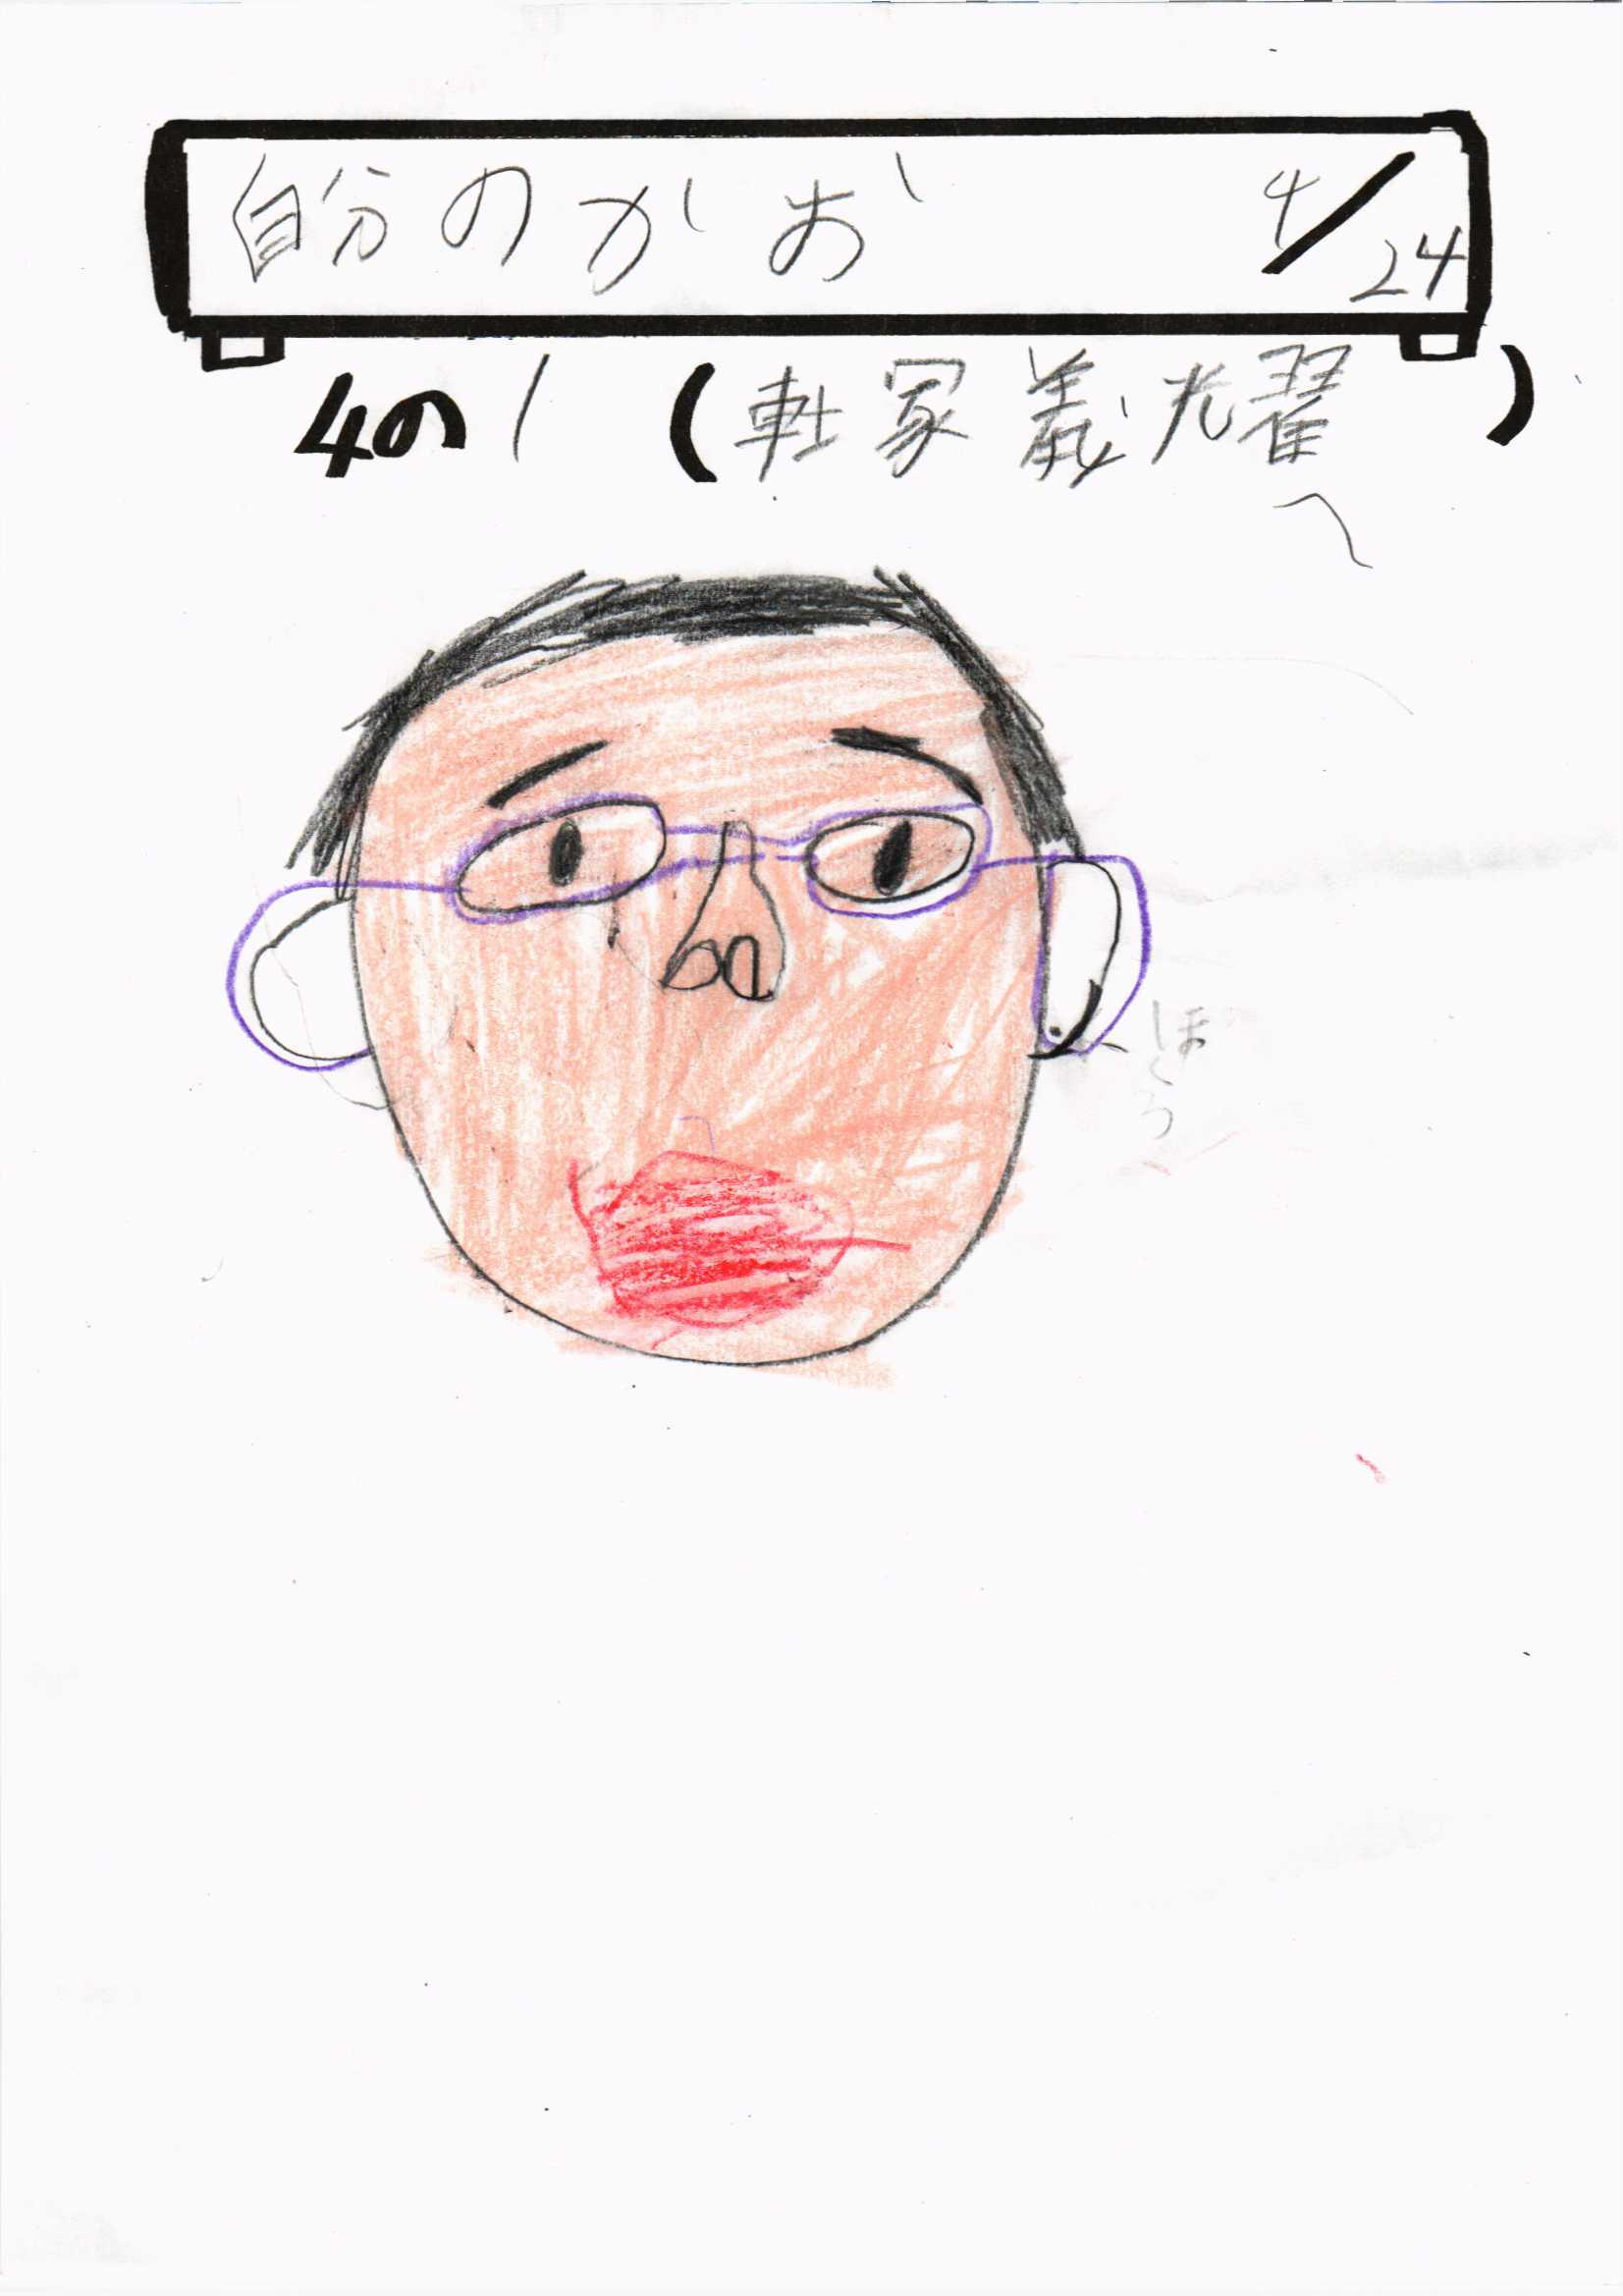 自分のかお 4/24
4の1 (軠冢義光耀)
ほくろ